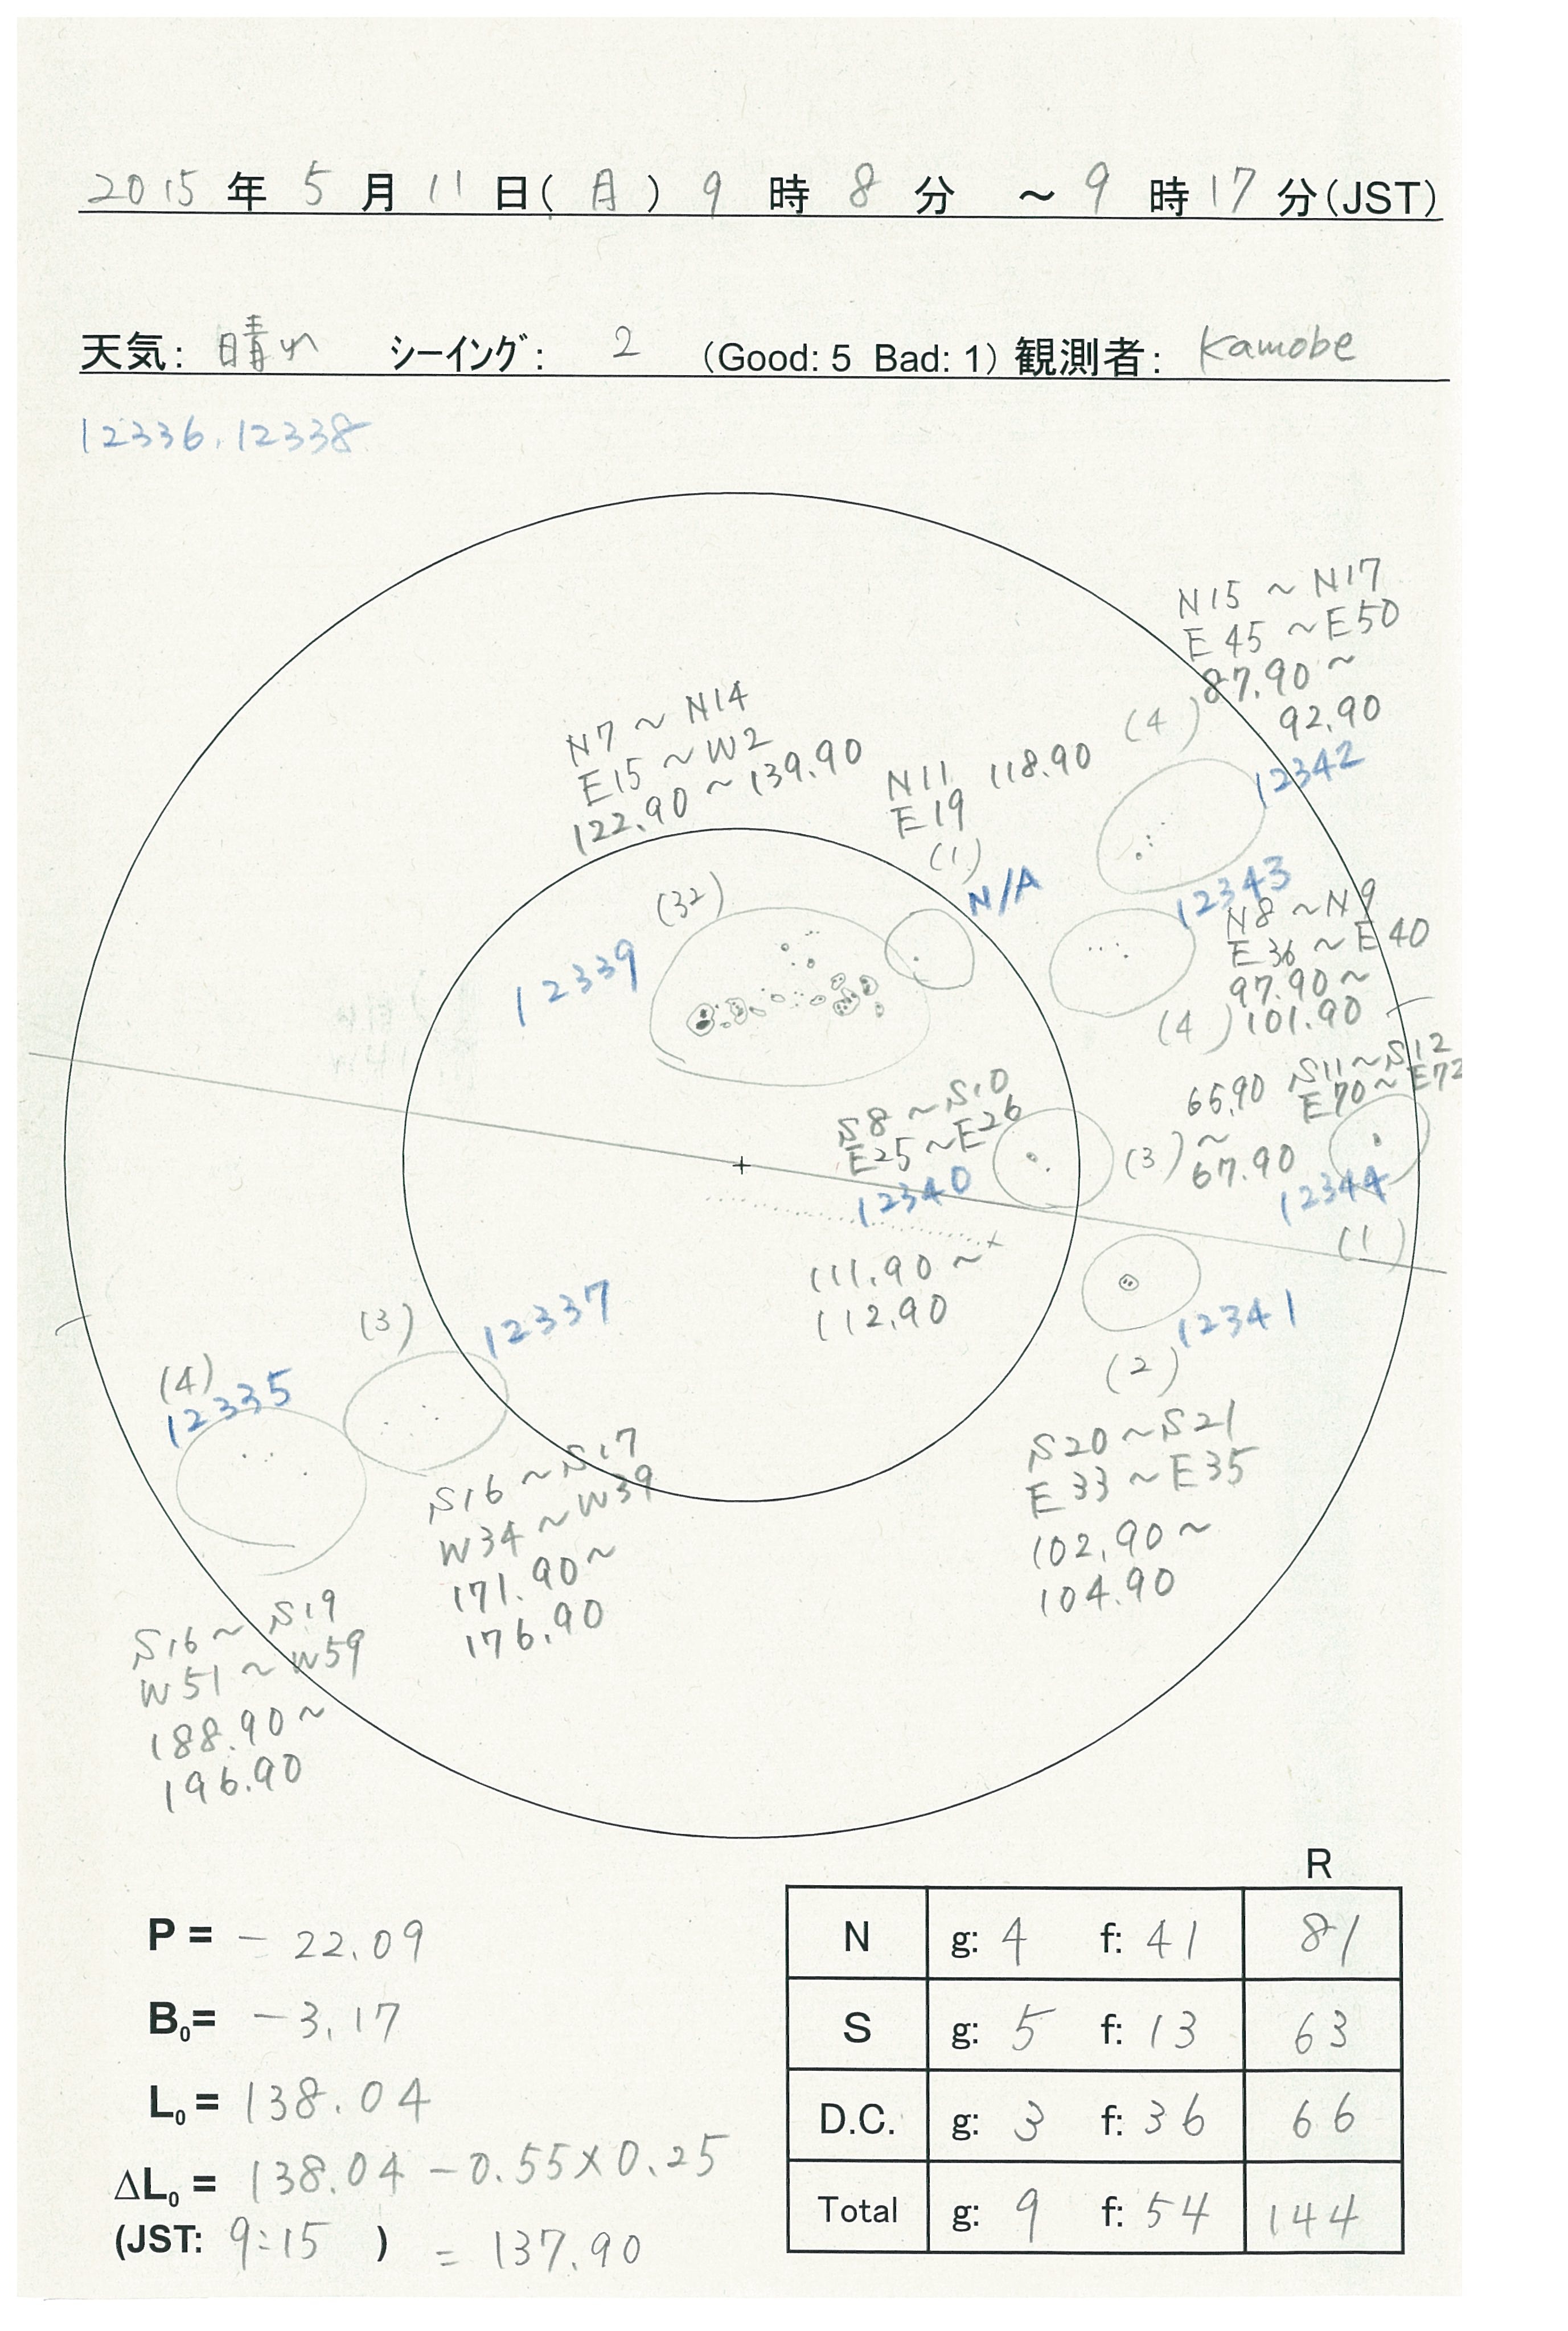 2015 年 5 月 11 日(月) 9 時 8 分 ～ 9 時 17 分(JST)
天気: 晴れ シーイング: 2 (Good: 5 Bad: 1) 観測者: Kamobe
12336, 12338
N15 ～ N17
E45 ～ E50
87.90 ～
92.90
(4)
12342
N7 ～ N14
E15 ～ W2
122.90 ～ 139.90
(32)
12339
N11 118.90
E19
(1)
N/A
12343
N8 ～ N9
E36 ～ E40
97.90 ～
101.90
(4)
S11 ～ S12
E70 ～ E72
65.90
～
67.90
12344
(1)
S8 ～ S10
E25 ～ E26
12340
(3)
111.90 ～
112.90
12341
(2)
S20 ～ S21
E33 ～ E35
102.90 ～
104.90
(3)
12337
S16 ～ S17
W34 ～ W39
171.90 ～
176.90
(4)
12335
S16 ～ S19
W51 ～ W59
188.90 ～
196.90
P = - 22.09
B₀= -3.17
L₀ = 138.04
ΔL₀ = 138.04 - 0.55×0.25
(JST: 9:15 ) = 137.90
R
N g: 4 f: 41 81
S g: 5 f: 13 63
D.C. g: 3 f: 36 66
Total g: 9 f: 54 144